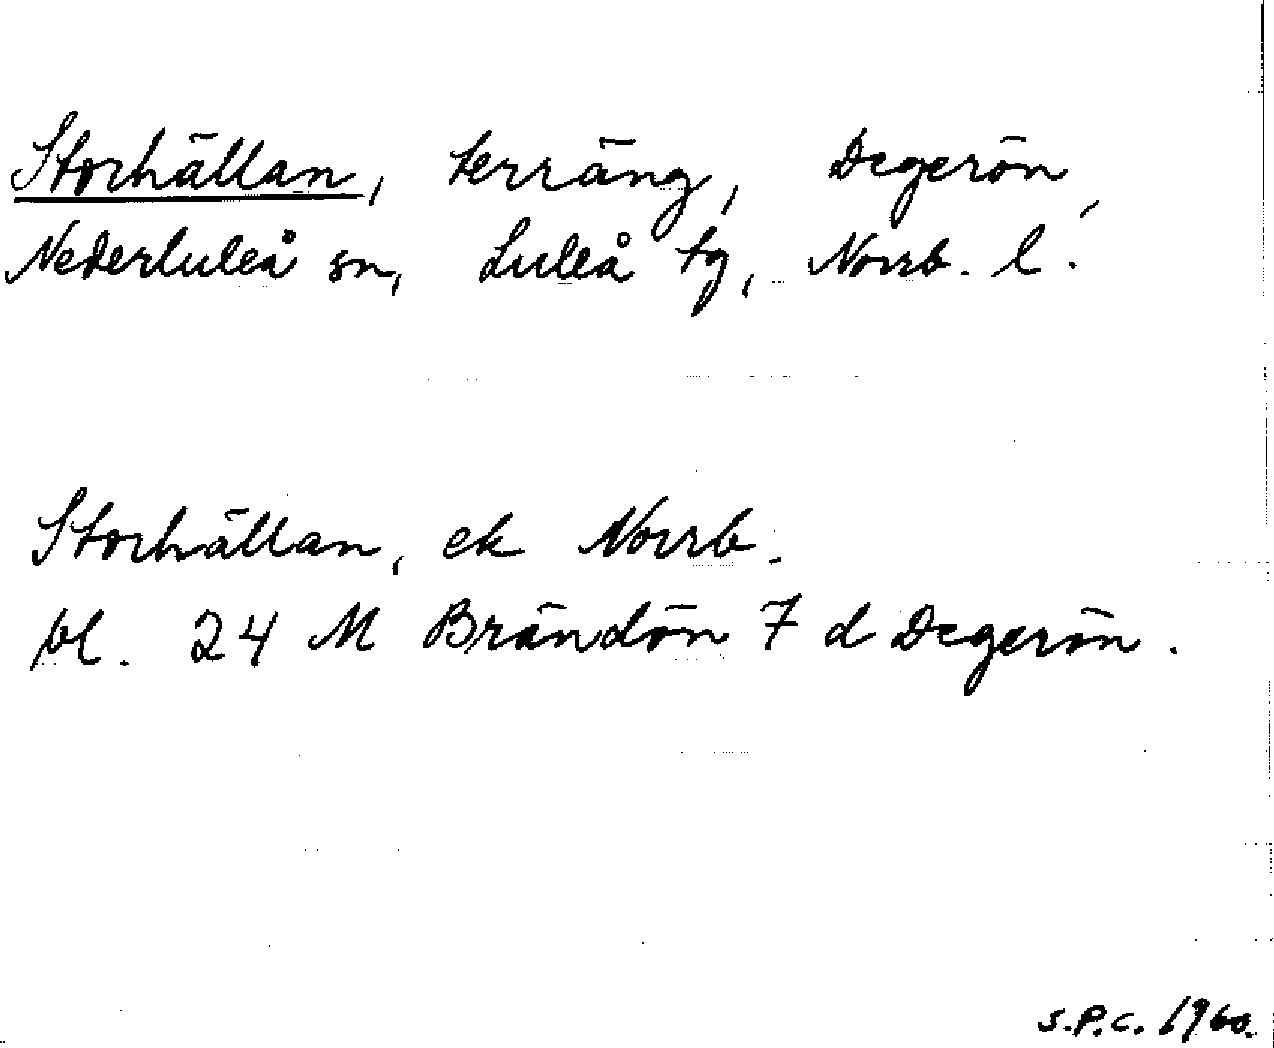 Storhällan, terräng, Degerön,
Nederluleå sn, Luleå tg, Norrb. l.
Storhällan, ek Norrb.
bl. 24 M Brändön 7 d Degerön.
S.P.C. 1960.